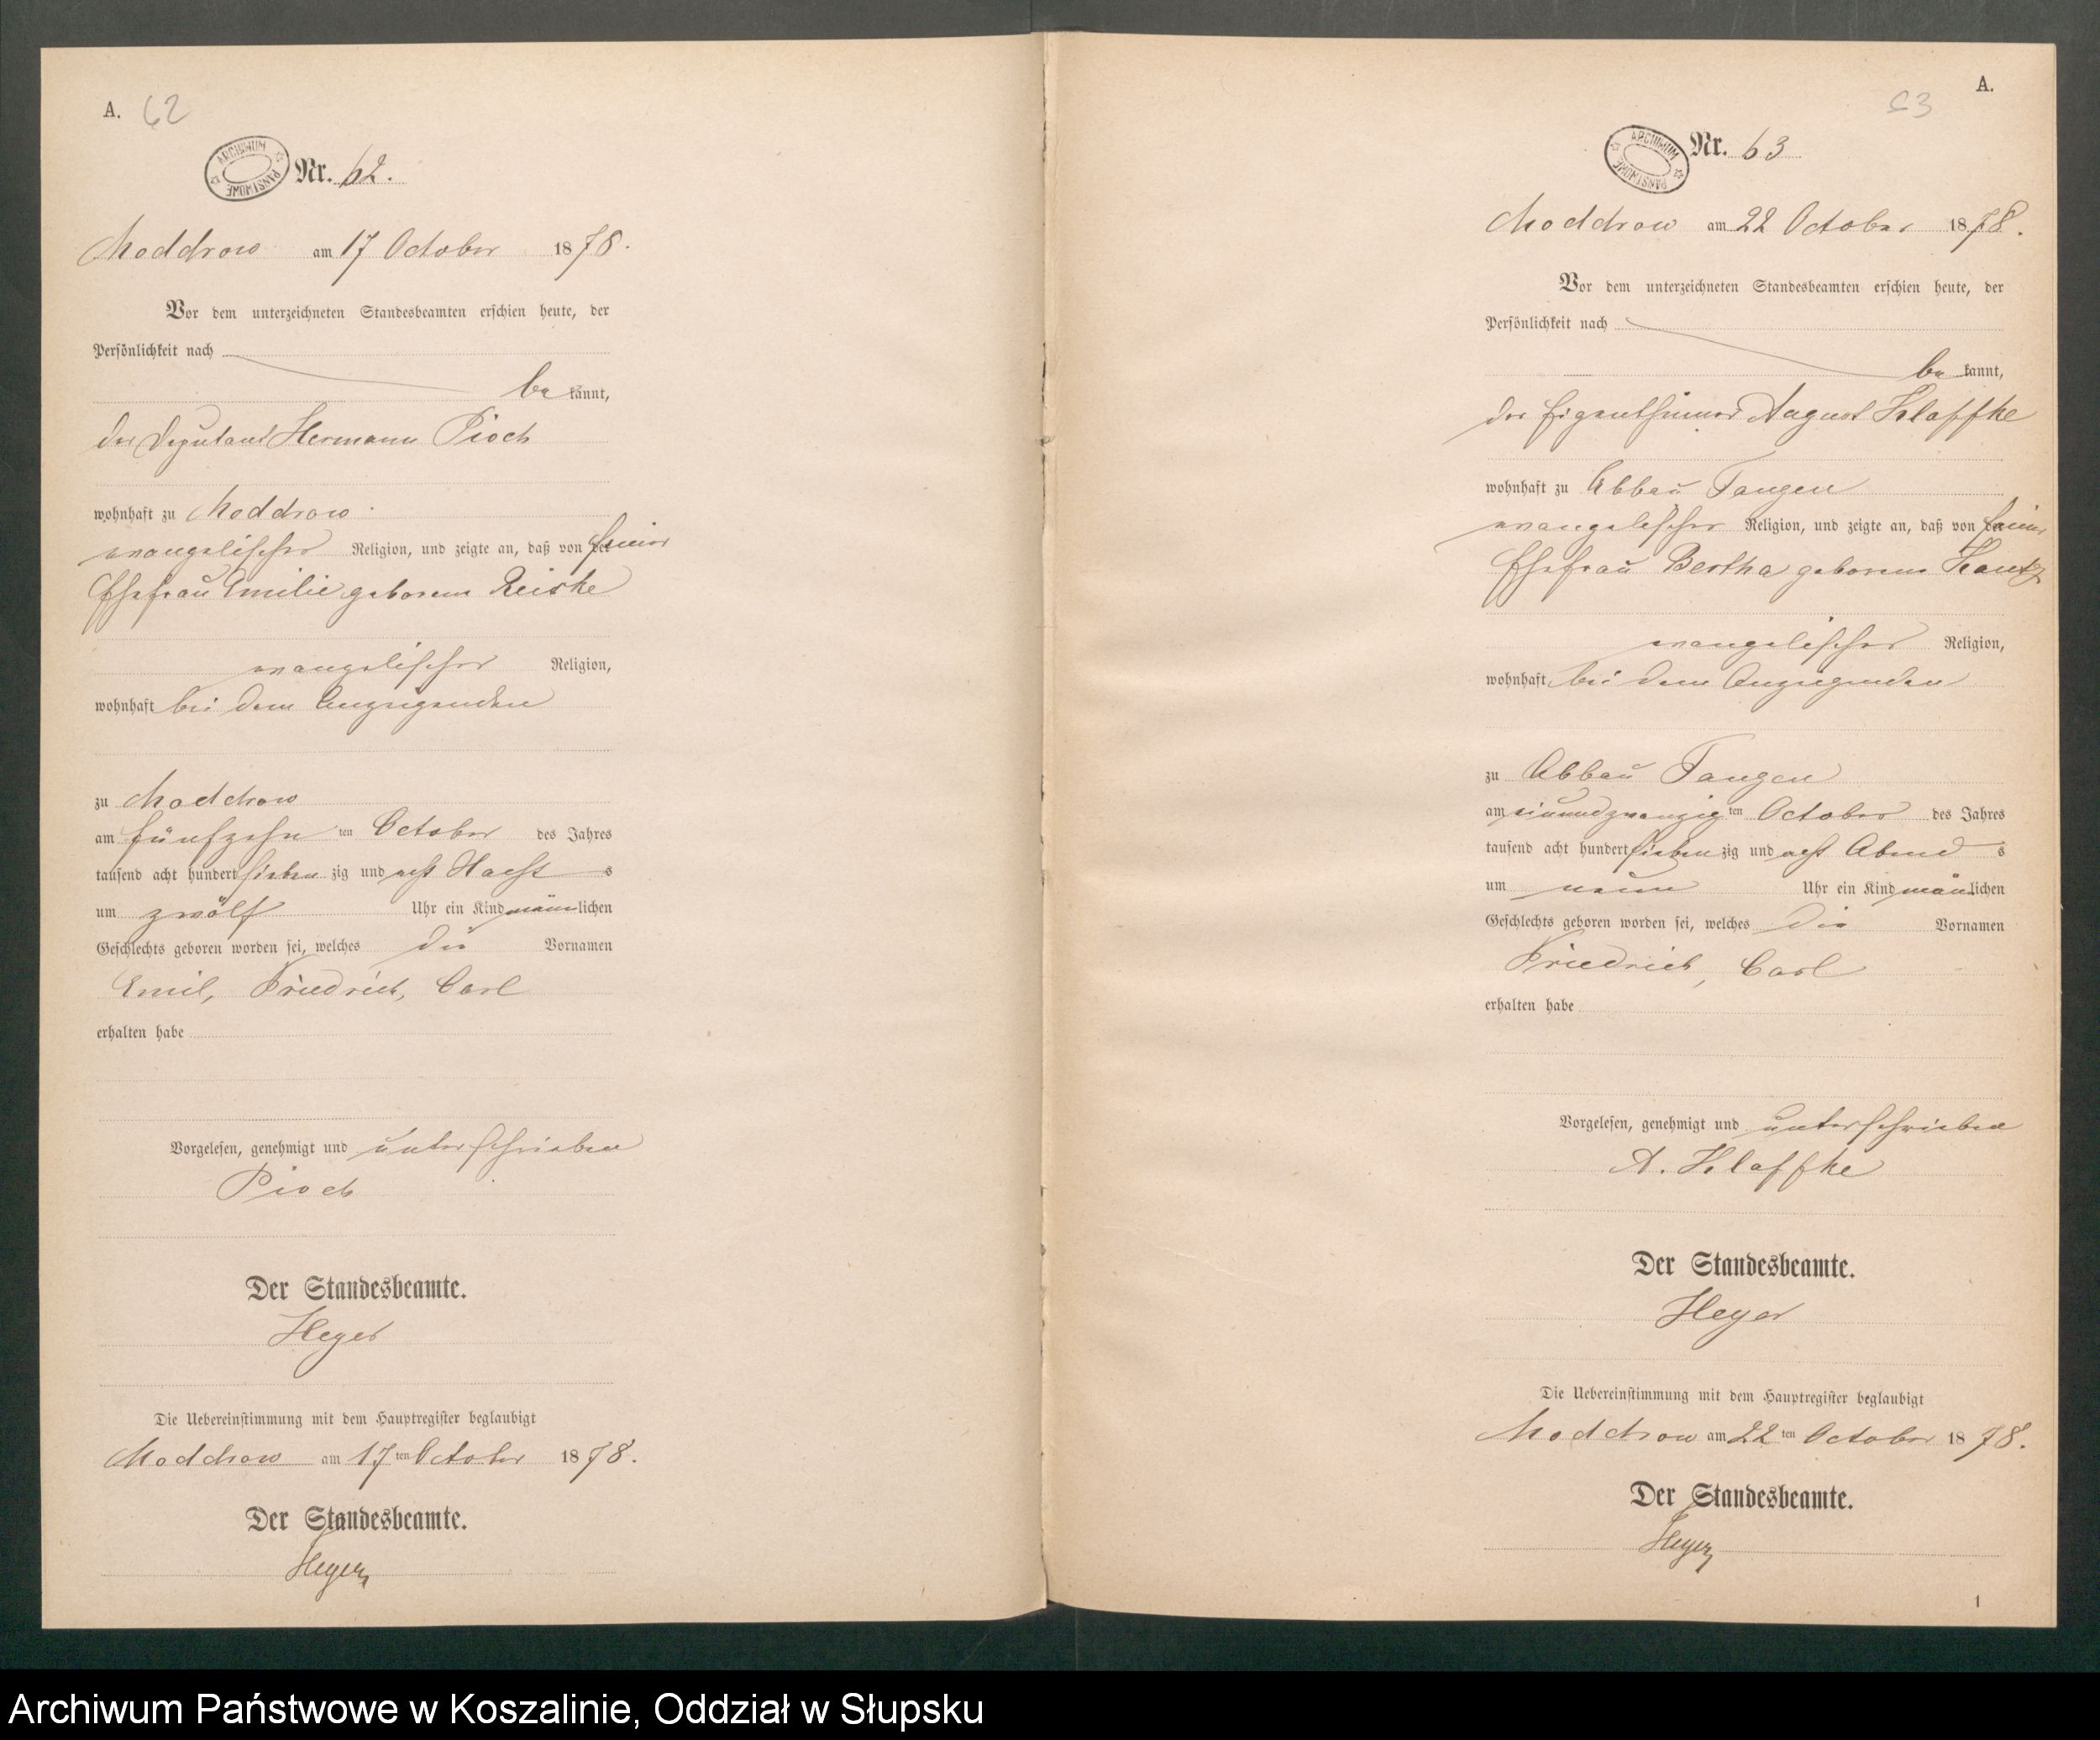 A. 62
ARCHIWUM PAŃSTWOWE
Nr. 62.
Moddrow am 17 October 1878.
Vor dem unterzeichneten Standesbeamten erschien heute, der
Persönlichkeit nach
be kannt,
der Deputant Hermann Pioch
wohnhaft zu Moddrow
evangelischer Religion, und zeigte an, daß von seiner
Ehefrau Emilie geborene Reiske
evangelischer Religion,
wohnhaft bei dem Anzeigenden
zu Moddrow
am fünfzehn ten October des Jahres
tausend acht hundert sieben zig und acht Nachts
um zwölf Uhr ein Kind männlichen
Geschlechts geboren worden sei, welches die Vornamen
Emil, Friedrich, Carl
erhalten habe
Vorgelesen, genehmigt und unterschrieben
Pioch
Der Standesbeamte.
Heyer
Die Uebereinstimmung mit dem Hauptregister beglaubigt
Moddrow am 17 ten October 1878.
Der Standesbeamte.
Heyer
A.
63
ARCHIWUM PAŃSTWOWE
Nr. 63
Moddrow am 22 October 1878.
Vor dem unterzeichneten Standesbeamten erschien heute, der
Persönlichkeit nach
be kannt,
der Eigenthümer August Klaffke
wohnhaft zu Abbau Tangen
evangelischer Religion, und zeigte an, daß von seiner
Ehefrau Bertha geborene
evangelischer Religion,
wohnhaft bei dem Anzeigenden
zu Abbau Tangen
am einundzwanzig ten October des Jahres
tausend acht hundert sieben zig und acht Abend s
um neun Uhr ein Kind männlichen
Geschlechts geboren worden sei, welches die Vornamen
Friedrich, Carl
erhalten habe
Vorgelesen, genehmigt und unterschrieben
A. Klaffke
Der Standesbeamte.
Heyer
Die Uebereinstimmung mit dem Hauptregister beglaubigt
Moddrow am 22 ten October 1878.
Der Standesbeamte.
Heyer
1
Archiwum Państwowe w Koszalinie, Oddział w Słupsku